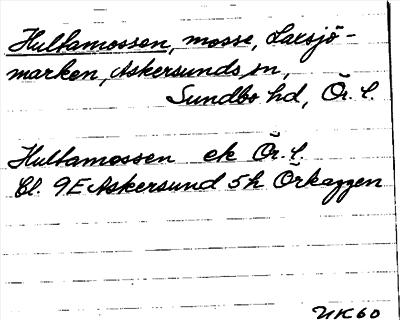 Hultamossen, mosse, Laxsjö-
marken, Askersunds sn,
Sundbo hd, Ör. l.
Hultamossen ek Ör. l.
Bl. 9E Askersund 5h Örkaggen
NK60